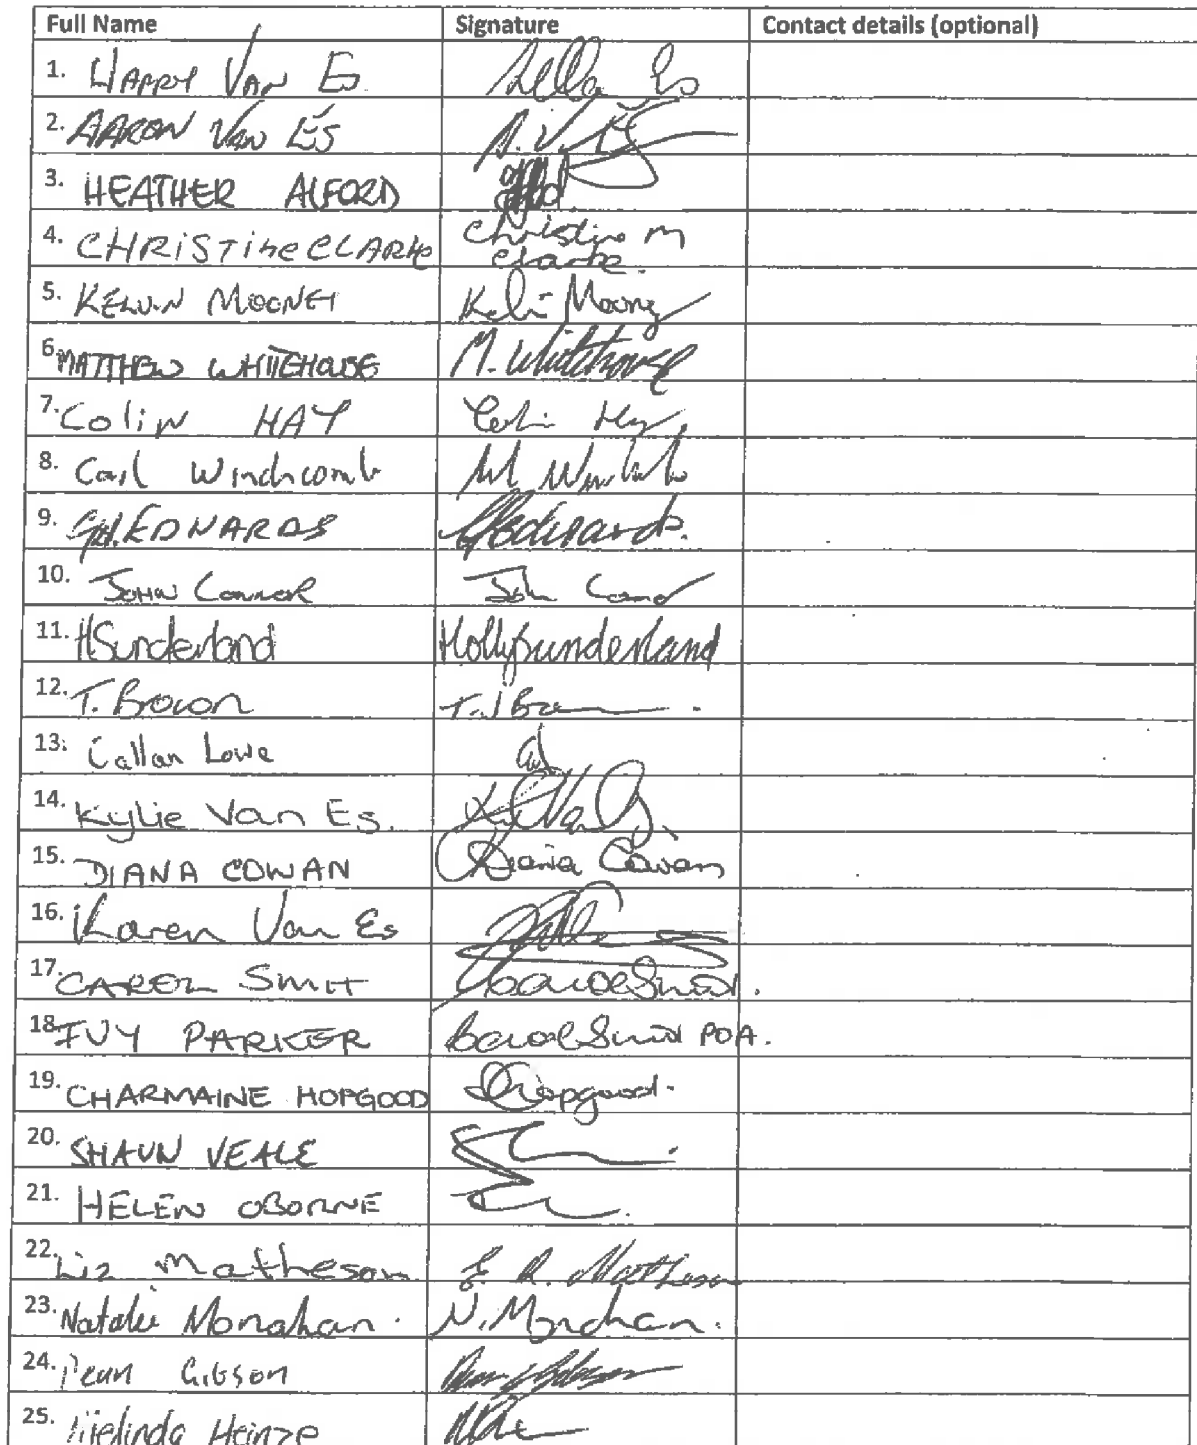 Full Name Signature Contact details (optional)
1. HARRY VAN ES
2. AARON VAN ES A. V
3. HEATHER ALFORD
4. CHRISTINE CLARKE Christine M
Clarke.
5. KELVIN MOONEY Kelvin Mooney
6. MATTHEW WHITEHOUSE M. Whitehouse
7. Colin HAY Colin Hay
8. Carl Windicomb
9. G.H. EDWARDS GHEdwards.
10. JOHN CONNOR John Connor
11. HSunderland HollySunderland
12. T. Brown T.J Br
13. Callan Lowe
14. Kylie Van Es. K Van Es.
15. DIANA COWAN Diana Cowan
16. Karen Van Es
17. CAROL SMIT Carol Smit.
18. IVY PARKER Carol Smit POA.
19. CHARMAINE HOPGOOD CHopgood.
20. SHAUN VEALE
21. HELEN OBORNE
22. Liz Matheson E. R. Matheson
23. Natalie Monahan. N. Monahan.
24. Gibson
25. Melinda Heinze